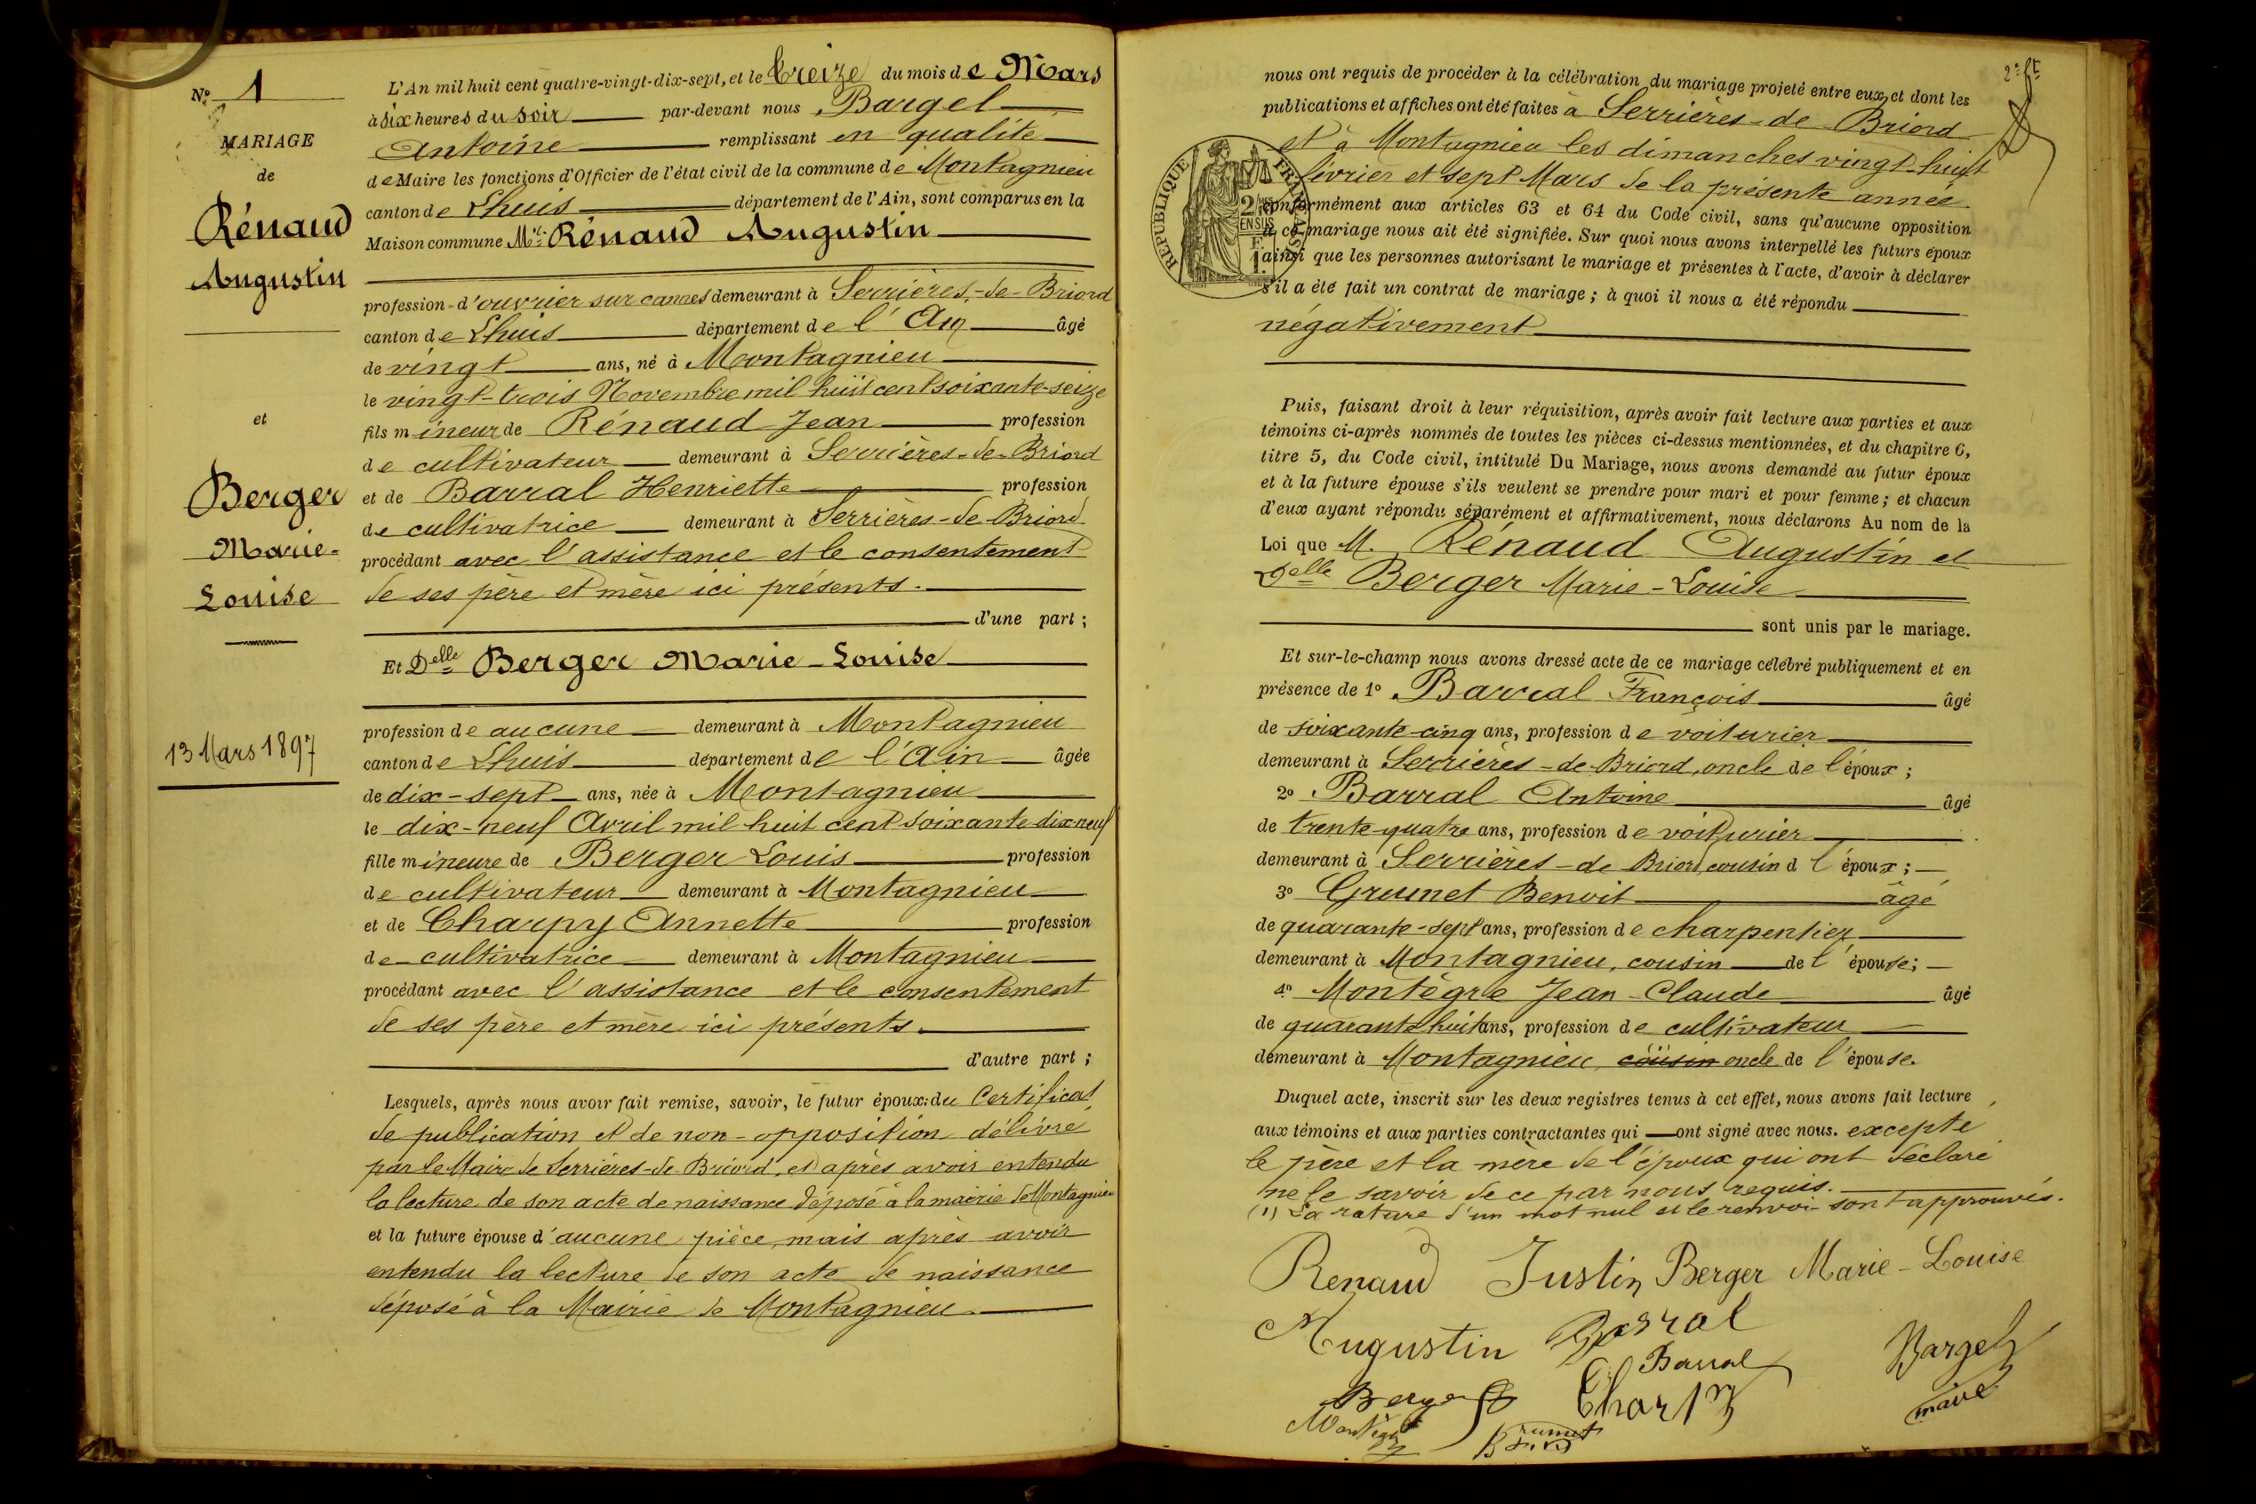 No 1
MARIAGE
de
Rénaud
Augustin
et
Berger
Marie-
Louise
13 Mars 1897
L'An mil huit cent quatre-vingt-dix-sept, et le treize du mois de Mars
à six heures du soir par-devant nous Bargel
Antoine remplissant en qualité
de Maire les fonctions d'Officier de l'état civil de la commune de Montagnieu
canton de Lhuis département de l'Ain, sont comparus en la
Maison commune Mr Rénaud Augustin
profession d'ouvrier sur cannes demeurant à Serrières-de-Briord
canton de Lhuis département de l'Ain âgé
de vingt ans, né à Montagnieu
le vingt-trois Novembre mil huit cent soixante-seize
fils mineur de Rénaud Jean profession
de cultivateur demeurant à Serrières-de-Briord
et de Barral Henriette profession
de cultivatrice demeurant à Serrières-de-Briord
procédant avec l'assistance et le consentement
de ses père et mère ici présents.
d'une part ;
Et Delle Berger Marie-Louise
profession de aucune demeurant à Montagnieu
canton de Lhuis département de l'Ain âgée
de dix-sept ans, née à Montagnieu
le dix-neuf Avril mil huit cent soixante-dix-neuf
fille mineure de Berger Louis profession
de cultivateur demeurant à Montagnieu
et de Charpy Annette profession
de cultivatrice demeurant à Montagnieu
procédant avec l'assistance et le consentement
de ses père et mère ici présents.
d'autre part ;
Lesquels, après nous avoir fait remise, savoir, le futur époux: du Certificat
de publication et de non-opposition délivré
par le Maire de Serrières-de-Briord, et après avoir entendu
la lecture de son acte de naissance déposé à la mairie de Montagnieu
et la future épouse d'aucune pièce, mais après avoir
entendu la lecture de son acte de naissance
déposé à la Mairie de Montagnieu.
2e ft
nous ont requis de procéder à la célébration du mariage projeté entre eux, et dont les
publications et affiches ont été faites à Serrières-de-Briord
et à Montagnieu les dimanches vingt-huit
février et sept Mars de la présente année.
RÉPUBLIQUE FRANÇAISE
2/10 EN SUS
conformément aux articles 63 et 64 du Code civil, sans qu'aucune opposition
à ce mariage nous ait été signifiée. Sur quoi nous avons interpellé les futurs époux
ainsi que les personnes autorisant le mariage et présentes à l'acte, d'avoir à déclarer
s'il a été fait un contrat de mariage ; à quoi il nous a été répondu
négativement
Puis, faisant droit à leur réquisition, après avoir fait lecture aux parties et aux
témoins ci-après nommés de toutes les pièces ci-dessus mentionnées, et du chapitre 6,
titre 5, du Code civil, intitulé Du Mariage, nous avons demandé au futur époux
et à la future épouse s'ils veulent se prendre pour mari et pour femme ; et chacun
d'eux ayant répondu séparément et affirmativement, nous déclarons Au nom de la
Loi que M. Rénaud Augustin et
Delle Berger Marie-Louise
sont unis par le mariage.
Et sur-le-champ nous avons dressé acte de ce mariage célébré publiquement et en
présence de 1o Barral François âgé
de soixante-cinq ans, profession de voiturier
demeurant à Serrières-de-Briord, oncle de l'époux ;
2o Barral Antoine âgé
de trente-quatre ans, profession de voiturier
demeurant à Serrières-de-Briord cousin d l'époux ;
3o Grumet Benoit âgé
de quarante-sept ans, profession de charpentier
demeurant à Montagnieu, cousin de l'épouse;
4o Montègre Jean-Claude âgé
de quarante-huit ans, profession de cultivateur
demeurant à Montagnieu, cousin oncle de l'épouse.
Duquel acte, inscrit sur les deux registres tenus à cet effet, nous avons fait lecture
aux témoins et aux parties contractantes qui ont signé avec nous. excepté
le père et la mère de l'époux qui ont déclaré
ne le savoir de ce par nous requis.
(1) La rature d'un mot nul et le renvoi sont approuvés.
Renaud Justin Berger Marie-Louise
Augustin Barral
Barral Bargel
Berger Charpy maire
Montègre Grumet